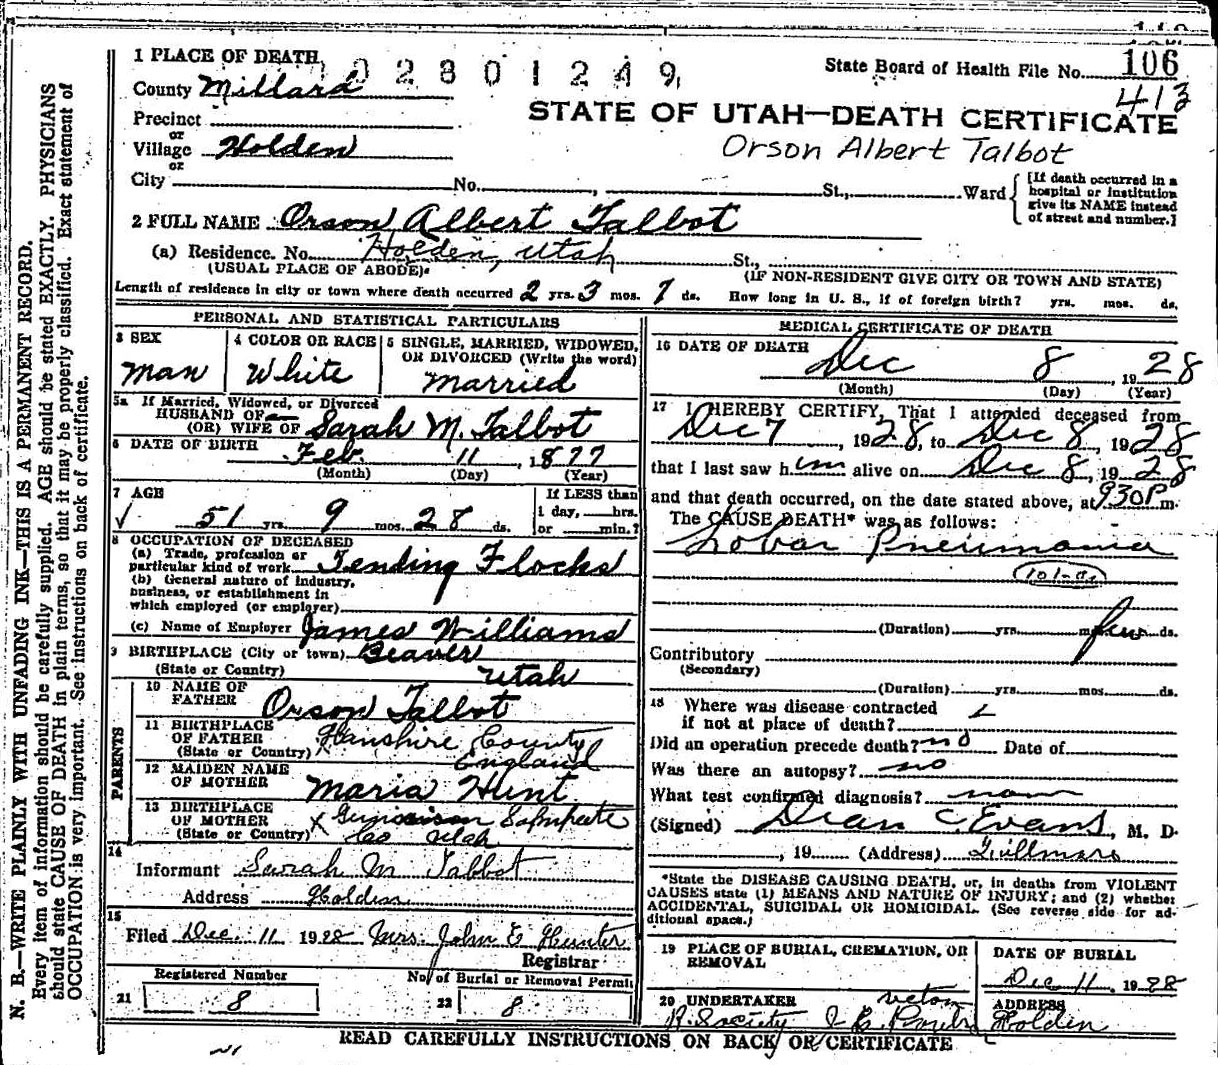 1 PLACE OF DEATH
02801249
State Board of Health File No. 106
County Millard
413
STATE OF UTAH—DEATH CERTIFICATE
Precinct
or
Village Holden
Orson Albert Talbot
or
City No. , St., Ward
[If death occurred in a hospital or institution give its NAME instead of street and number.]
2 FULL NAME Orson Albert Talbot
(a) Residence. No. Holden, Utah St.,
(USUAL PLACE OF ABODE) (IF NON-RESIDENT GIVE CITY OR TOWN AND STATE)
Length of residence in city or town where death occurred 2 yrs. 3 mos. 7 ds. How long in U. S., if of foreign birth? yrs. mos. ds.
PERSONAL AND STATISTICAL PARTICULARS
3 SEX
man
4 COLOR OR RACE
White
5 SINGLE, MARRIED, WIDOWED, OR DIVORCED (Write the word)
married
5a If Married, Widowed, or Divorced
HUSBAND OF
(OR) WIFE OF Sarah M. Talbot
6 DATE OF BIRTH Feb. 11, 1877
(Month) (Day) (Year)
7 AGE
✓ 51 yrs. 9 mos. 28 ds.
If LESS than
1 day, hrs.
or min.?
8 OCCUPATION OF DECEASED
(a) Trade, profession or
particular kind of work Tending Flocks
(b) General nature of industry,
business, or establishment in
which employed (or employer)
(c) Name of Employer James Williams
9 BIRTHPLACE (City or town) Beaver
(State or Country) Utah
PARENTS
10 NAME OF
FATHER Orson Talbot
11 BIRTHPLACE
OF FATHER
(State or Country) x Hanshire County
England
12 MAIDEN NAME
OF MOTHER Maria Hunt
13 BIRTHPLACE
OF MOTHER
(State or Country) x
Co Utah
14
Informant Sarah M Talbot
Address Holden
15
Filed Dec. 11 1928 Mrs. John E Hunter
Registrar
Registered Number No. of Burial or Removal Permit
21 8 22 8
MEDICAL CERTIFICATE OF DEATH
16 DATE OF DEATH
Dec 8, 1928
(Month) (Day) (Year)
17 I HEREBY CERTIFY, That I attended deceased from
Dec 7, 1928, to Dec 8, 1928
that I last saw him alive on Dec 8, 1928
and that death occurred, on the date stated above, at 930P m.
The CAUSE DEATH* was as follows:
Lobar Pneumonia
101-a
(Duration) yrs. mos. few ds.
Contributory
(Secondary)
(Duration) yrs. mos. ds.
18 Where was disease contracted
if not at place of death?
Did an operation precede death? no Date of
Was there an autopsy? no
What test confirmed diagnosis?
(Signed) Dean C. Evans, M. D.
, 19 (Address) Fillmore
*State the DISEASE CAUSING DEATH, or, in deaths from VIOLENT
CAUSES state (1) MEANS AND NATURE OF INJURY; and (2) whether
ACCIDENTAL, SUICIDAL OR HOMICIDAL. (See reverse side for ad-
ditional space.)
19 PLACE OF BURIAL, CREMATION, OR
REMOVAL
DATE OF BURIAL
Dec 11, 1928
20 UNDERTAKER
R. Society
ADDRESS
Holden
READ CAREFULLY INSTRUCTIONS ON BACK OF CERTIFICATE
N. B.—WRITE PLAINLY WITH UNFADING INK—THIS IS A PERMANENT RECORD.
Every item of information should be carefully supplied. AGE should be stated EXACTLY. PHYSICIANS
should state CAUSE OF DEATH in plain terms, so that it may be properly classified. Exact statement of
OCCUPATION is very important. See instructions on back of certificate.